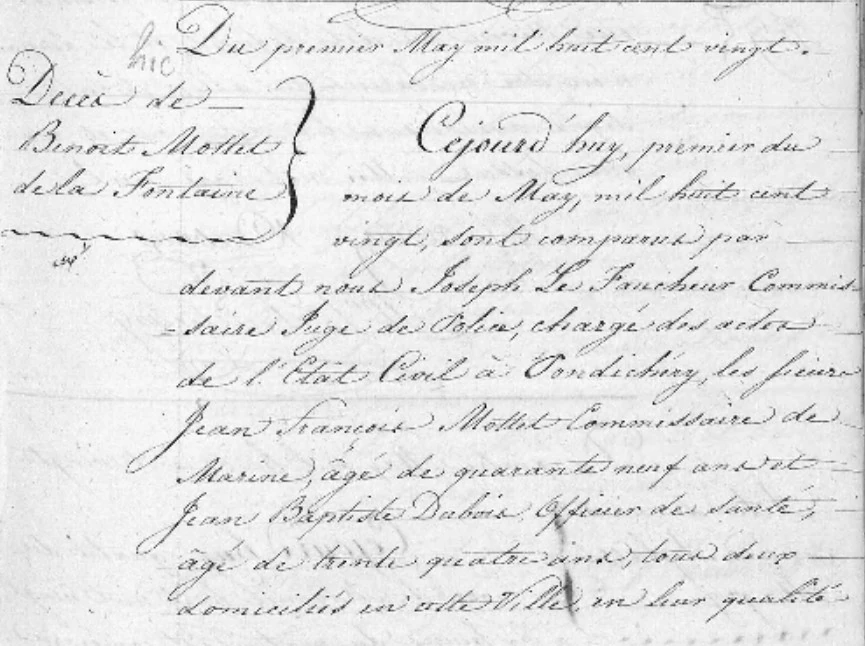 Du premier May mil huit cent vingt.
hic
Décès de
Benoit Mottet
de la Fontaine
Cejourd'huy, premier du
mois de May, mil huit cent
vingt, sont comparus par
devant nous Joseph Le Faucheur Commis-
-saire Juge de Police, chargé des actes
de l'Etat Civil à Pondichéry, les sieurs
Jean François Mottet Commissaire de
Marine, âgé de quarante neuf ans et
Jean Baptiste Dubois, Officier de santé,
âgé de trente quatre ans, tous deux
domiciliés en cette Ville, en leur qualité